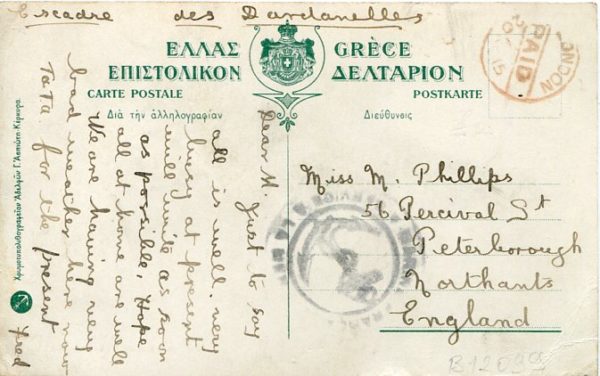 Escadre des Dardanelles
ΕΛΛΑΣ GRÈCE
ΕΠΙΣΤΟΛΙΚΟΝ ΔΕΛΤΑΡΙΟΝ
CARTE POSTALE POSTKARTE
Διὰ τὴν ἀλληλογραφίαν Διεύθυνσις
PAID
LONDON
15
Dear M. Just to say
all is well. very
busy at present
will write as soon
as possible, Hope
all at home are well
We are having very
bad weather here now
TaTa. for the present
Fred
Miss M. Phillips
56 Percival St
Peterborough
Northants
England
Χρωμολιθογραφεῖον Ἀδελφῶν Γ. Ἀσπιώτη-Κέρκυρα.